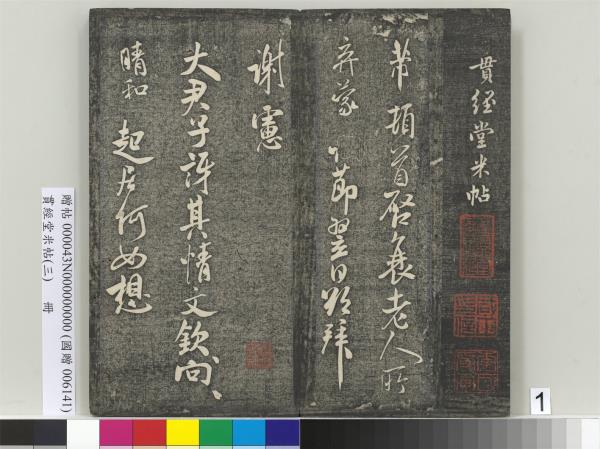 貫經堂米帖
芾頓首啓衰老人所
弃蒙 節翌日 拜
謝憲
大尹 訝其情文欽向
晴和 起居何如想
贈帖 000043N000000000 (國贈 006141)
貫經堂米帖(三) 冊
1